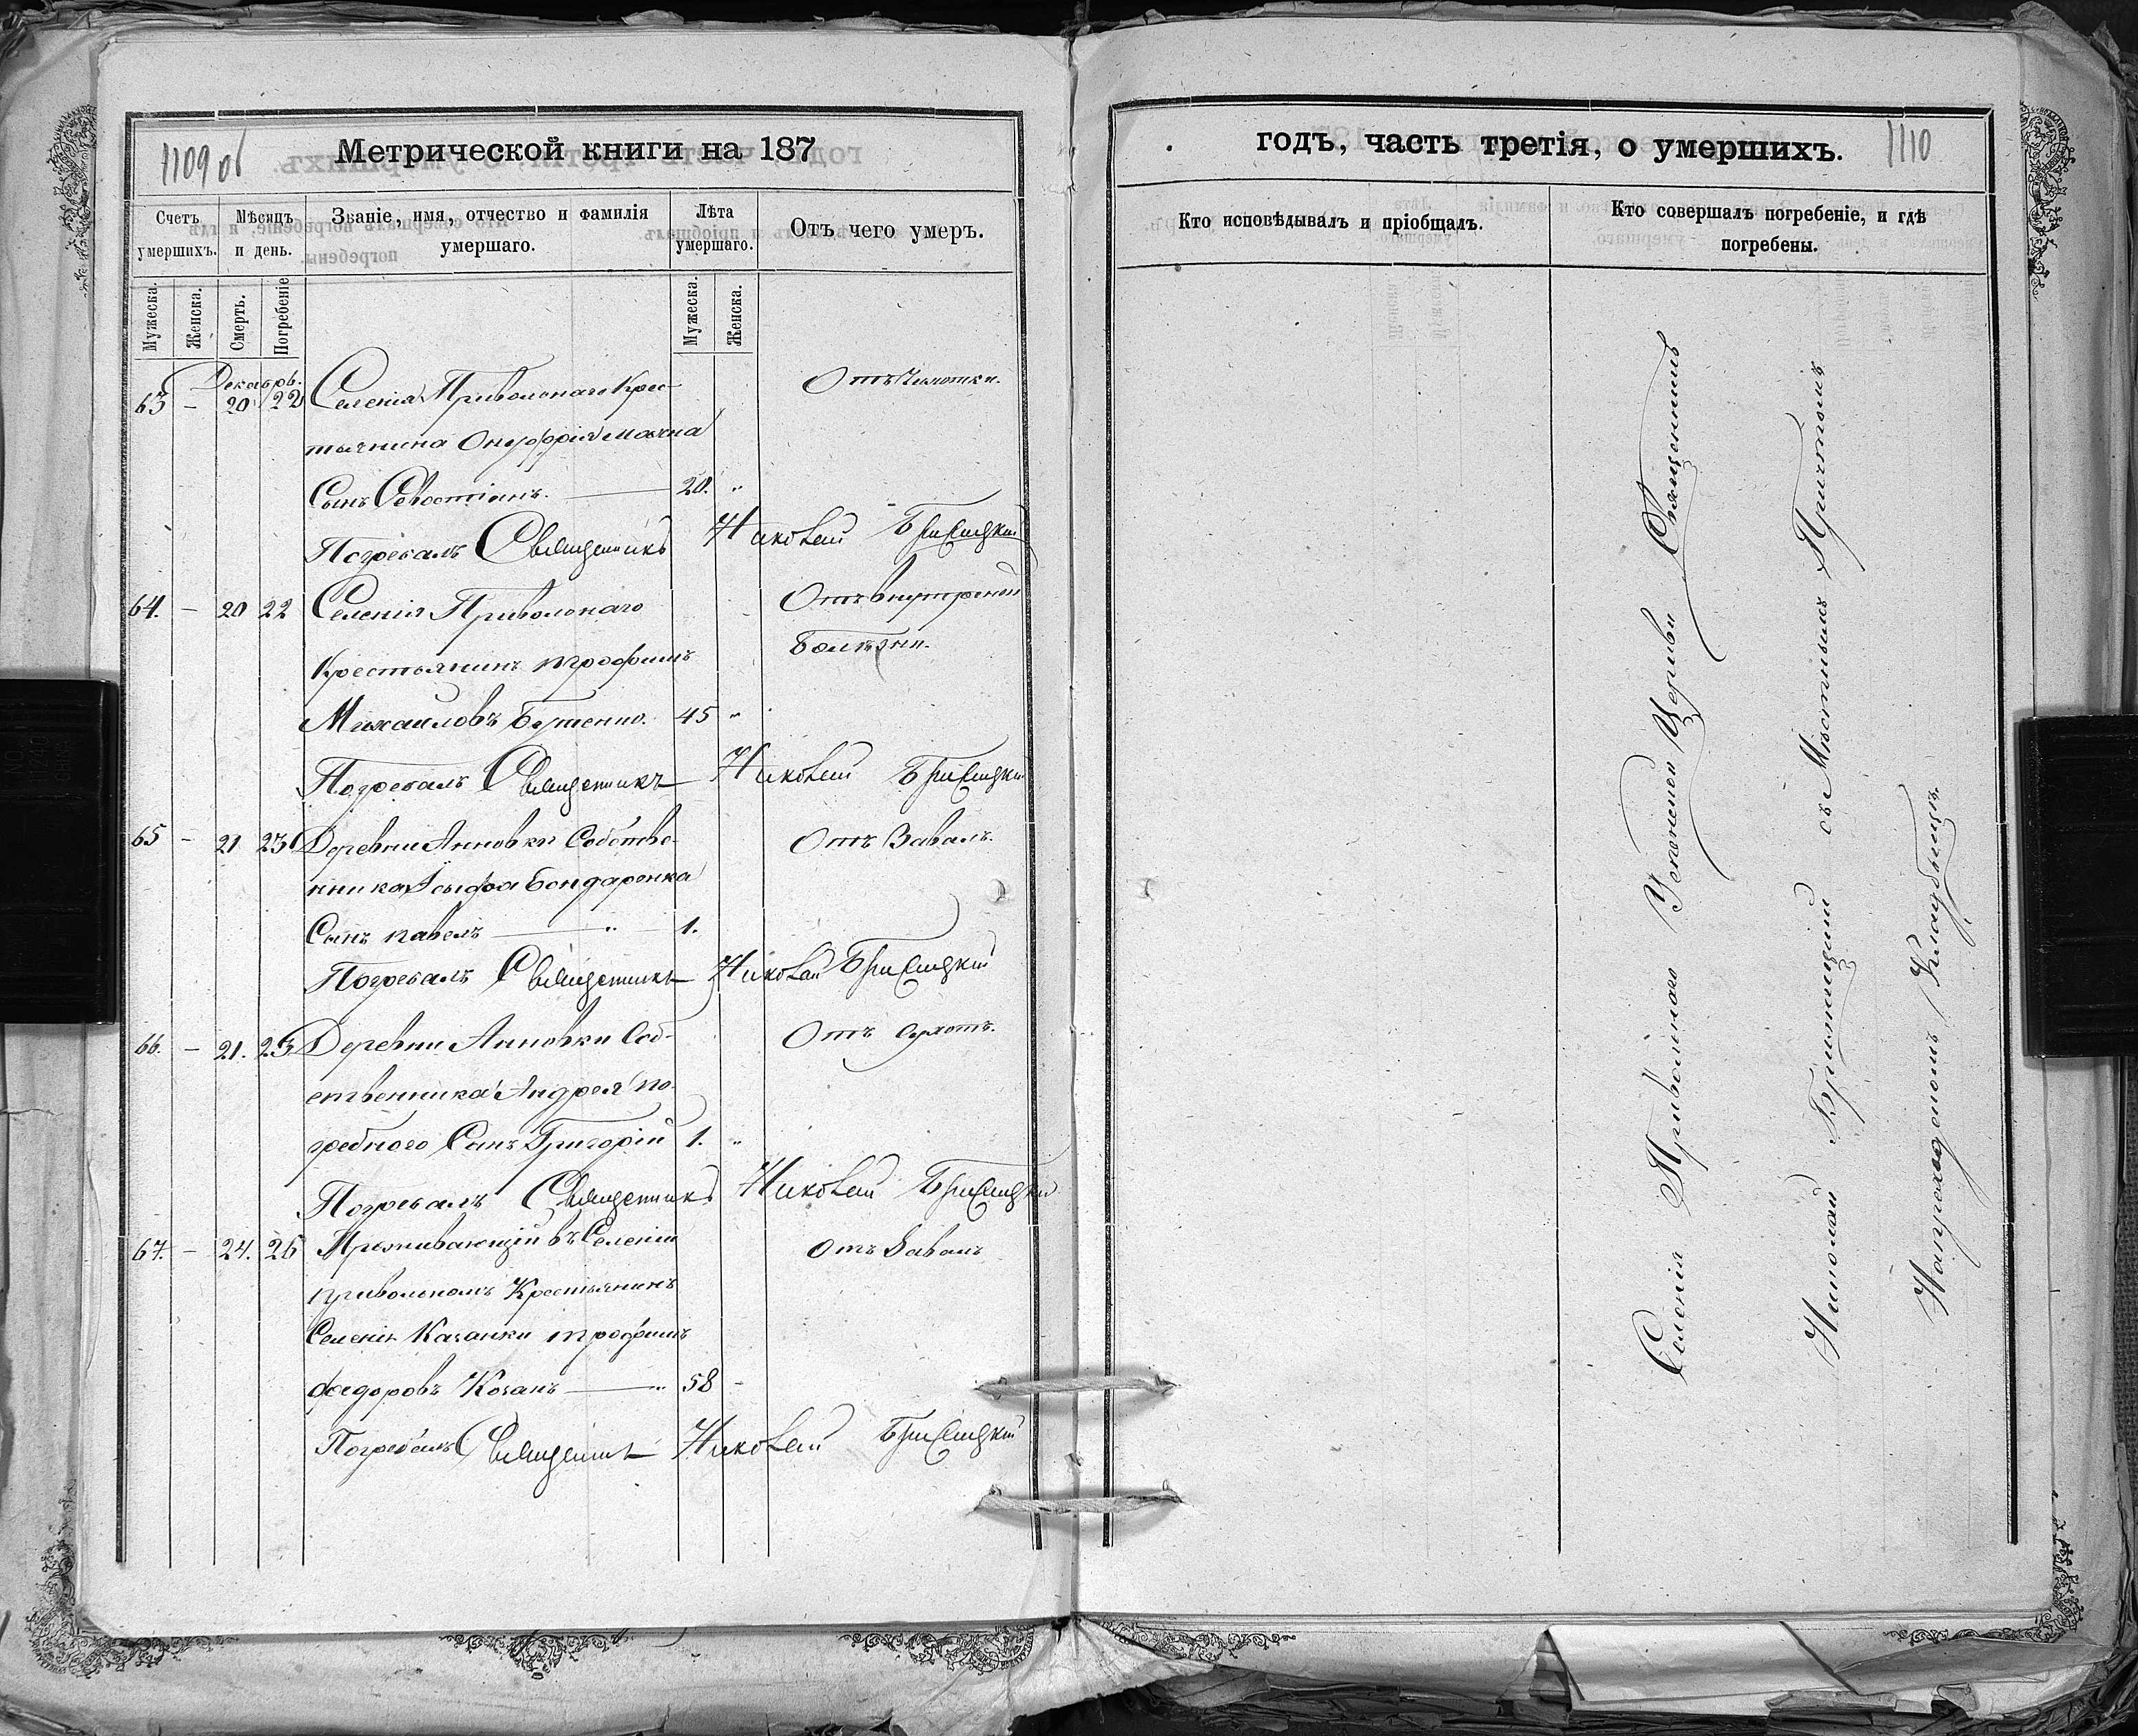 1109 об
Метрической книги на 187
Счетъ умершихъ.
Мѣсяцъ и день.
Званіе, имя, отчество и фамилія умершаго.
Лѣта умершаго.
Отъ чего умеръ.
Мужеска.
Женска.
Смерть.
Погребеніе
Мужеска.
Женска.
Декабрь.
63 – 20 22 Селенія Привольнаго Крес- Отъ Чахотки.
тьянина Онуффрія Махна
Сынъ Севостіянъ. 20. "
Погребалъ Священникъ Николай Бржезицкій
64. – 20 22 Селенія Привольнаго Отъ внутреней
Крестьянинъ трофимъ Болѣзни.
Михаиловъ Бутенко. 45 "
Погребалъ Священникъ Николай Бржезицкій
65 – 21 23 Деревни Анновки Собстве- Отъ Завалъ.
нника Іосифа Бондаренка
Сынъ павелъ " 1.
Погребалъ Священникъ Николай Бржезицкій
66. – 21. 23 Деревни Анновки Соб- Отъ Сухотъ.
ственника Андрея по-
гребного Сынъ Григорій 1. "
Погребалъ Священникъ Николай Бржезицкій
67. – 24. 26 Проживающій въ Селеніи Отъ Завалъ
привольномъ Крестьянинъ
Селенія Качанки трофимъ
федоровъ Кочанъ " 58 –
Погребалъ Священникъ Николай Бржезицкій
годъ, часть третія, о умершихъ.
1110
Кто исповѣдывалъ и пріобщалъ.
Кто совершалъ погребеніе, и гдѣ погребены.
Селенія Привольнаго Успенской Церкви Священникъ
Николай Бржезицкій съ Мѣстнымъ Причтомъ
На приходскомъ Кладбищѣ.